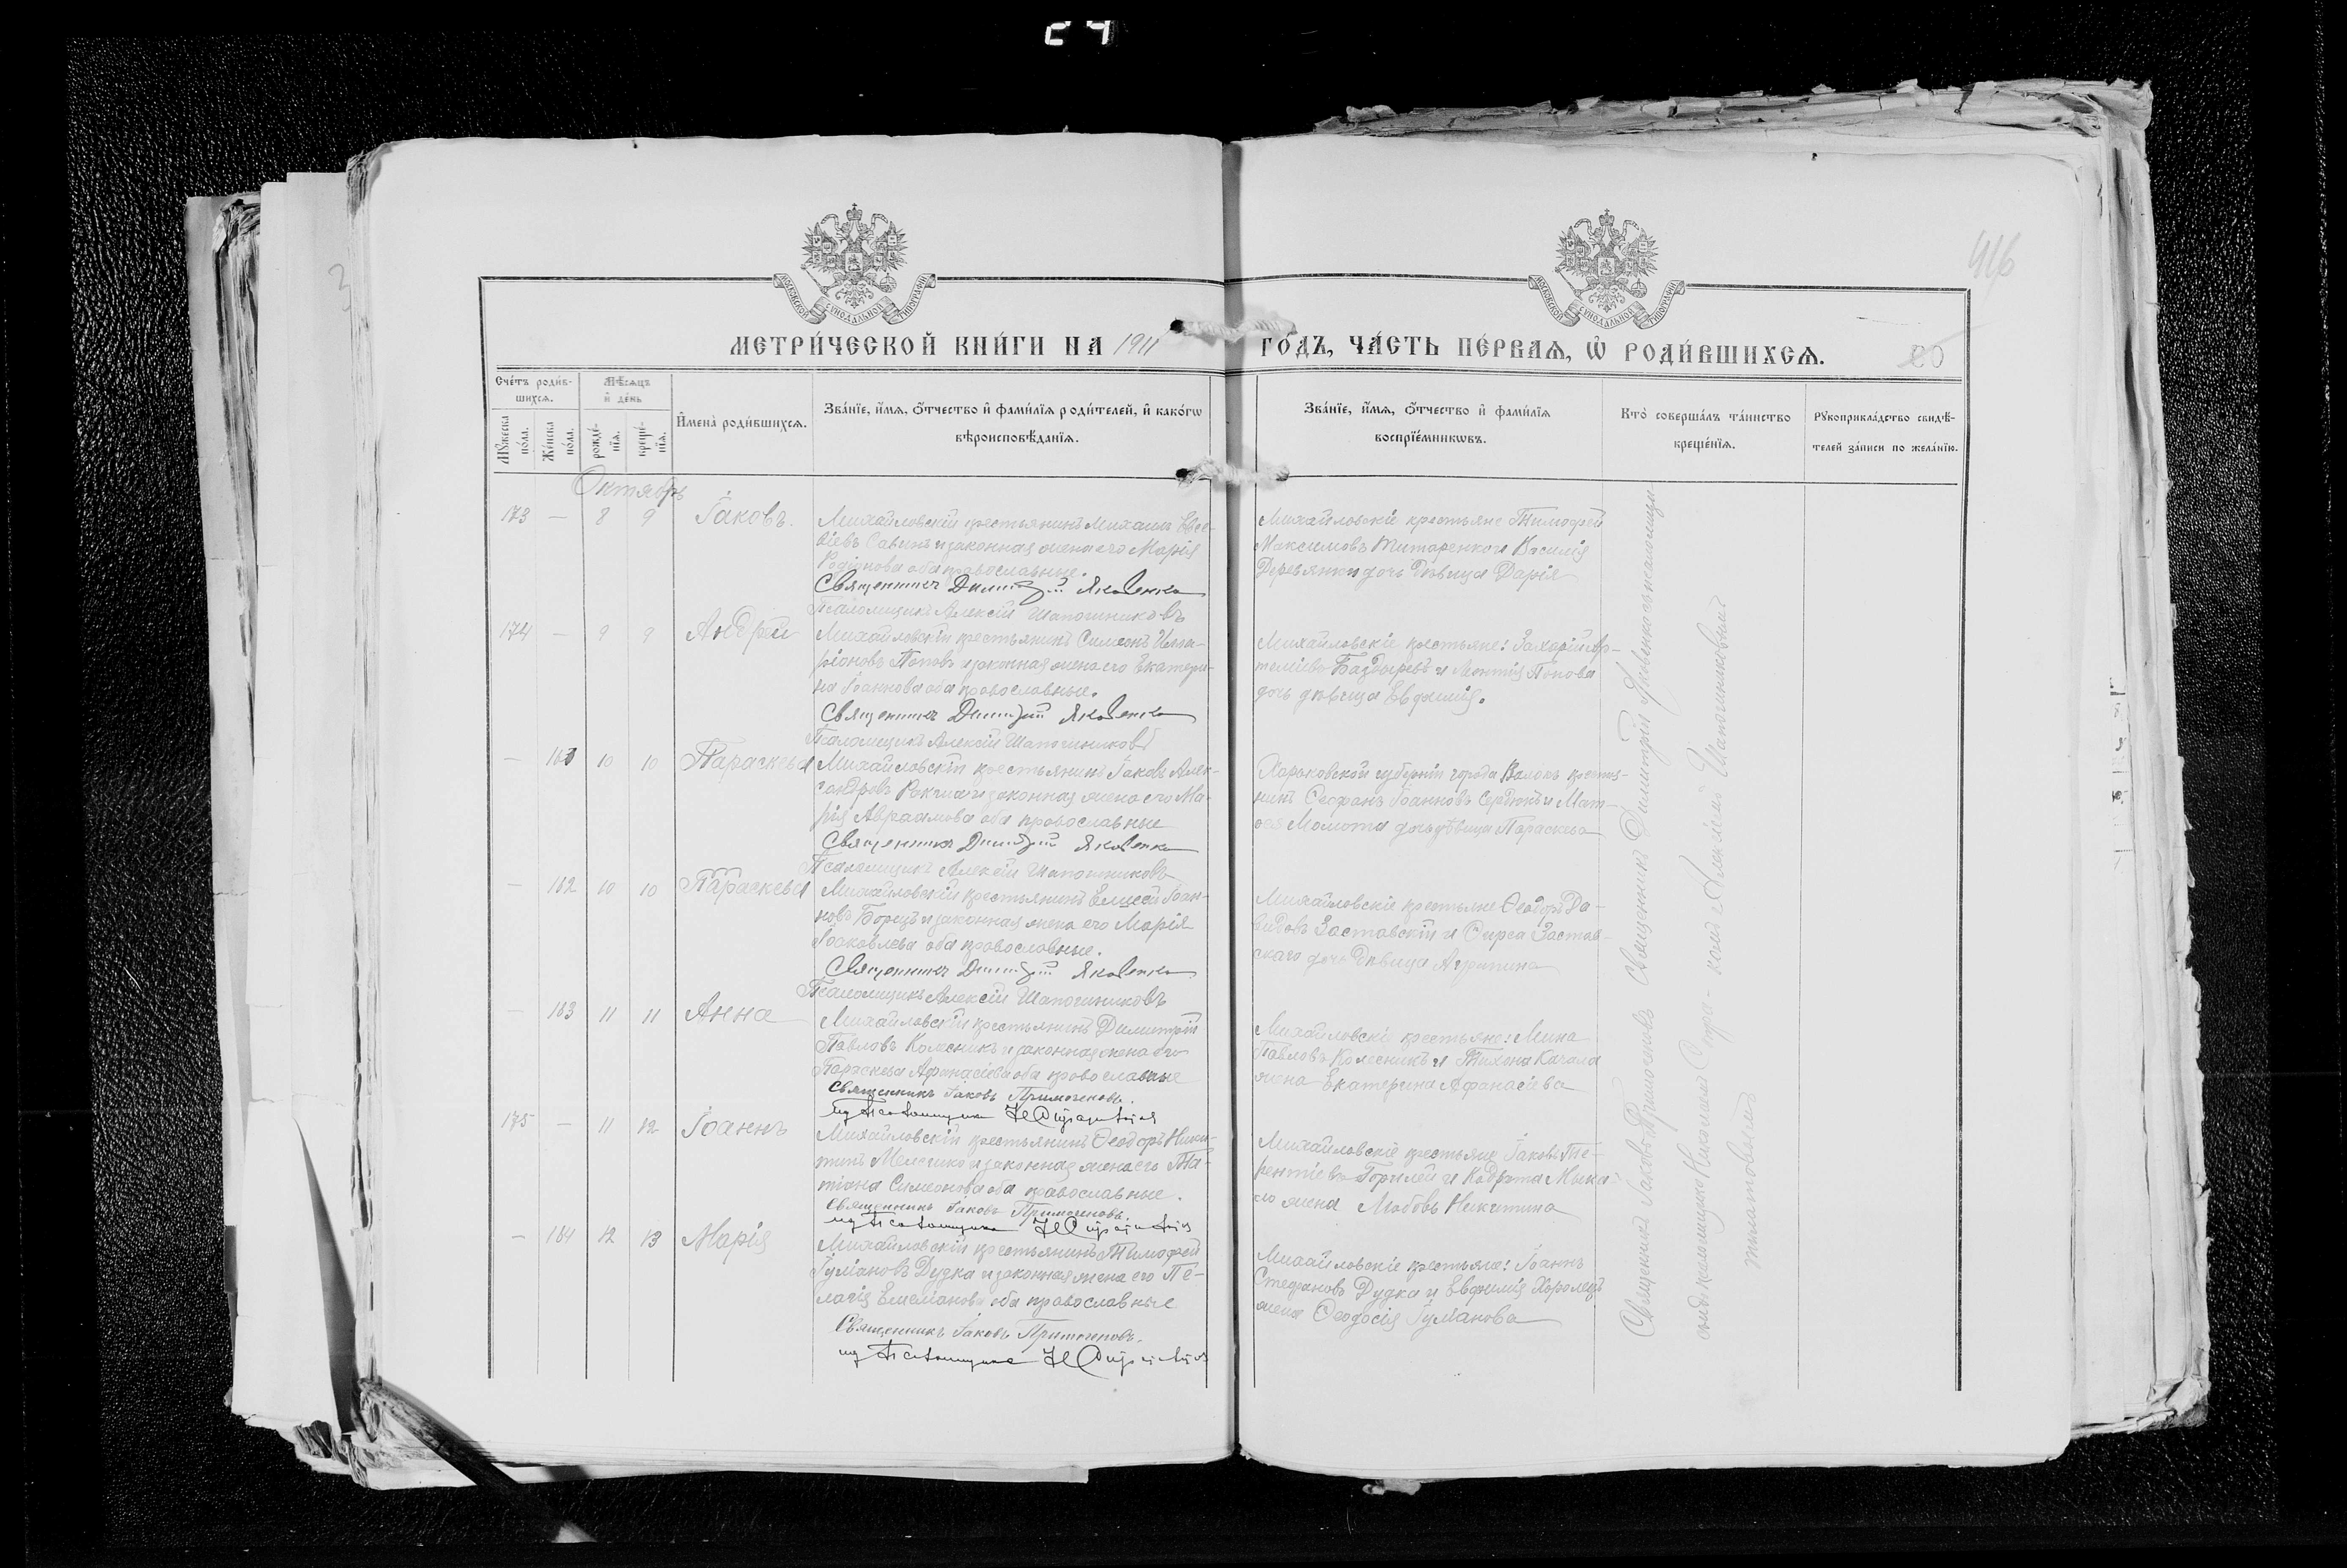 24
416
МЕТРИ́ЧЕСКОЙ КНИ́ГИ НА 1911 ГО́ДЪ, ЧА́СТЬ ПЕ́РВАѦ, Ѡ РОДИ́ВШИХСѦ.
20
Сче́тъ роди́в-
шихсѧ.
Мѣ́сѧцъ
и҆ де́нь
Мꙋ́жеска
по́ла.
Же́нска
по́ла.
рожде́-
нїѧ.
креще́-
нїѧ.
И҆мена̀ роди́вшихсѧ.
Зва́нїе, и҆́мѧ, о҆́тчество и҆ фами́лїѧ роди́телей, и҆ како́гѡ
вѣроисповѣ́данїѧ.
Зва́нїе, и҆́мѧ, о҆́тчество и҆ фами́лїѧ
воспрїе́мникѡвъ.
Кто̀ соверша́лъ та́инство
креще́нїѧ.
Рꙋкоприкла́дство свидѣ́-
телей за́писи по жела́нїю.
Октябрь
173 — 8 9 Іаковъ.
Михайловскій крестьянинъ Михаилъ Евсе-
віевъ Савинъ и законная жена его Марія
Родіонова оба православные.
Священникъ Димитрій Яковенко
Псаломщикъ Алексій Шапошниковъ
Михайловскіе крестьяне Тимофей
Максимовъ Титаренко и Василія
Деревянки дочь дѣвица Дарія
174 — 9 9 Андрей
Михайловскій крестьянинъ Симеонъ Илла-
ріоновъ Поповъ и законная жена его Екатери-
на Іоаннова оба православные.
Священникъ Димитрій Яковенко
Псаломщикъ Алексій Шапошниковъ
Михайловскіе крестьяне: Захарій Ар-
теміевъ Баздыревъ и Леонтія Попова
дочь дѣвица Евфимія.
— 181 10 10 Параскева
Михайловскій крестьянинъ Іаковъ Алек-
сандровъ и законная жена его Ма-
рія Авраамова оба православные
Священникъ Димитрій Яковенко
Псаломщикъ Алексій Шапошниковъ
Харьковской губерніи города Валокъ крестья-
нинъ Феофанъ Іоанновъ Сердюкъ и Мат-
фея Момота дочь дѣвица Параскева
— 182 10 10 Параскева
Михайловскій крестьянинъ Елисей Іоан-
новъ Борецъ и законная жена его Марія
Іаковлева оба православные.
Священникъ Димитрій Яковенко
Псаломщикъ Алексій Шапошниковъ
Михайловскіе крестьяне Ѳеодоръ Да-
видовъ Заставскій и Застав-
скаго дочь дѣвица Агрипина
— 183 11 11 Анна
Михайловскій крестьянинъ Димитрій
Павловъ Колесникъ и законная жена его
Параскева Афанасіева оба православные
Священникъ Іаковъ Примогеновъ.
Михайловскіе крестьяне: Мина
Павловъ Колесникъ и Тихона Качала
жена Екатерина Афанасіева
175 — 11 12 Іоаннъ
Михайловскій крестьянинъ Ѳеодоръ Ники-
тинъ и законная жена его Та-
тіана Симеонова оба православные.
Священникъ Іаковъ Примогеновъ.
Михайловскіе крестьяне Іаковъ Те-
рентіевъ и Кодрата
жена Любовь Никитина
— 184 12 13 Марія
Михайловскій крестьянинъ Тимофей
Іуліановъ Дудка и законная жена его Пе-
лагія Емеліанова оба православные
Священникъ Іаковъ Примогеновъ.
Михайловскіе крестьяне: Іоаннъ
Стефановъ Дудка и Евфимія Хоролецъ
жена Феодосія Іуліанова
Священники Іаковъ Примогеновъ Священникъ Димитрій Яковенко